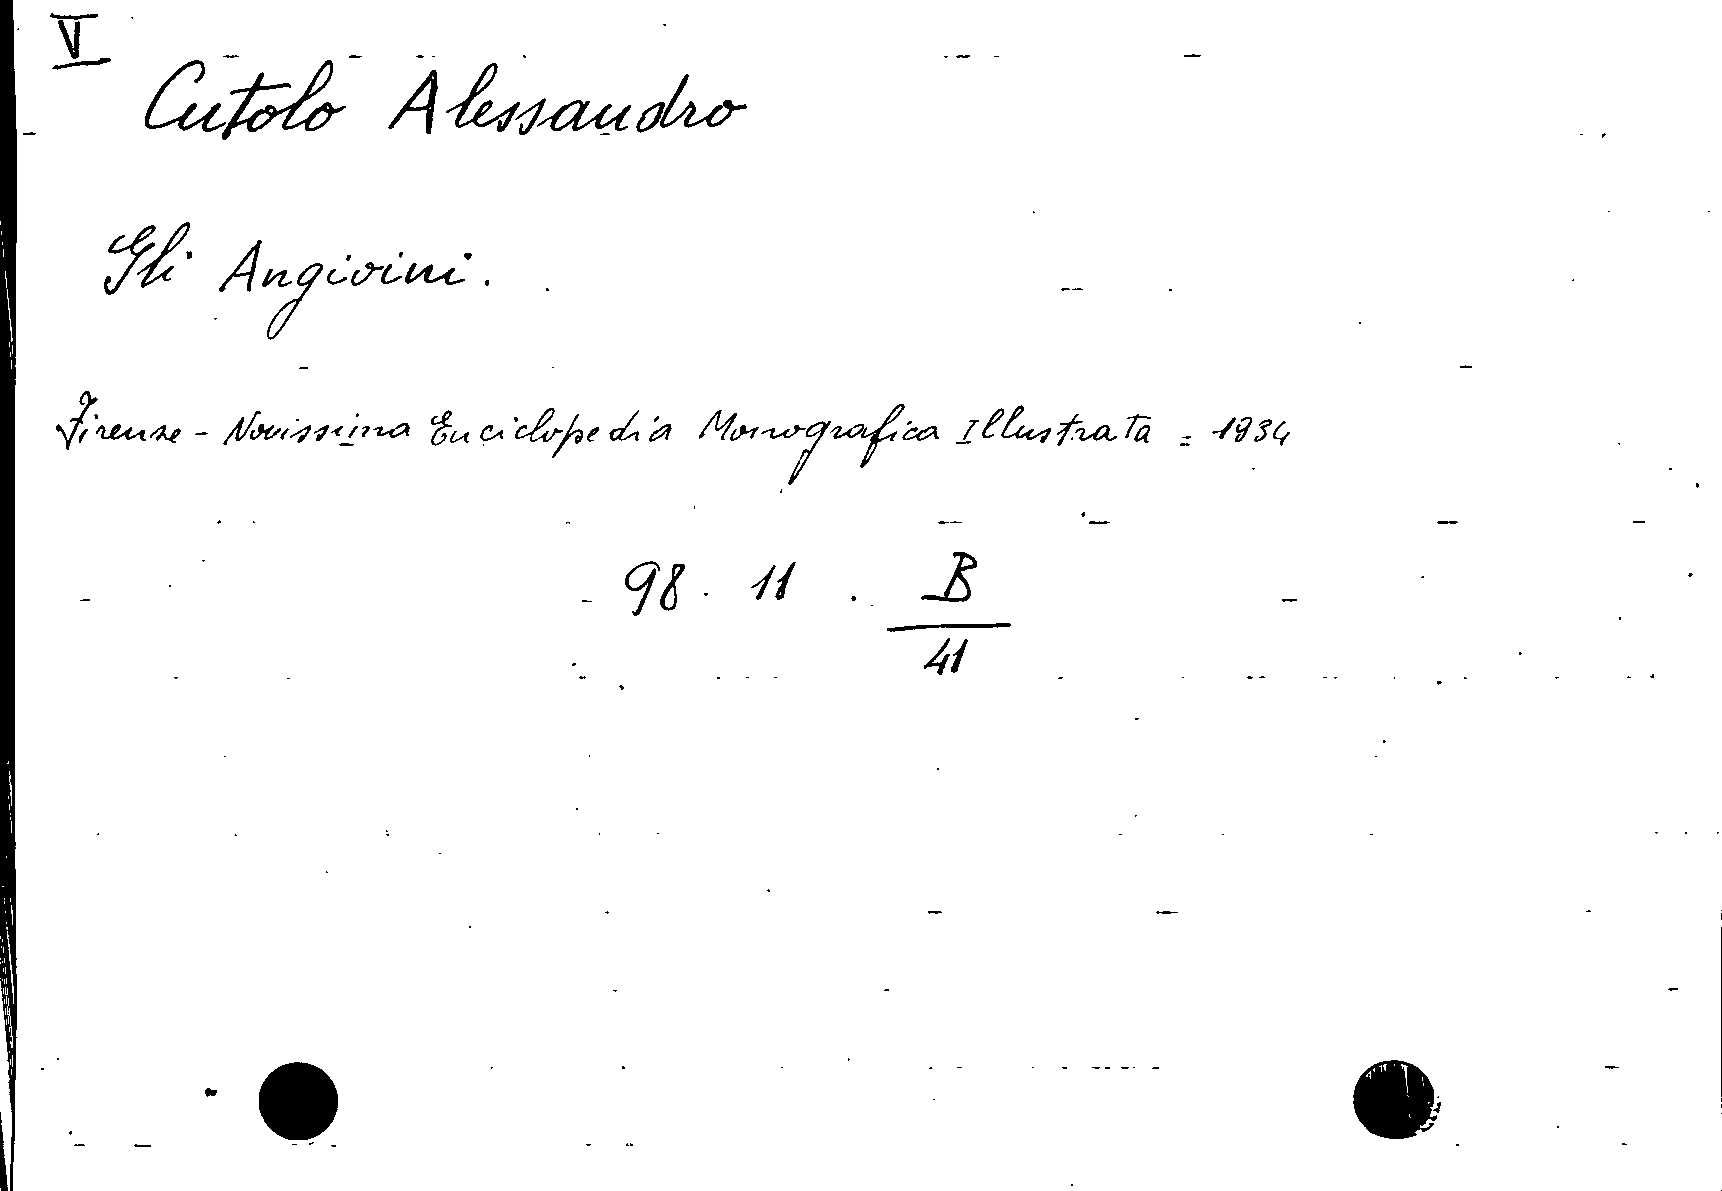 V
Cutolo Alessandro
Gli Angioini.
Firenze - Novissima Enciclopedia Monografica Illustrata = 1934
98. 11. B
41